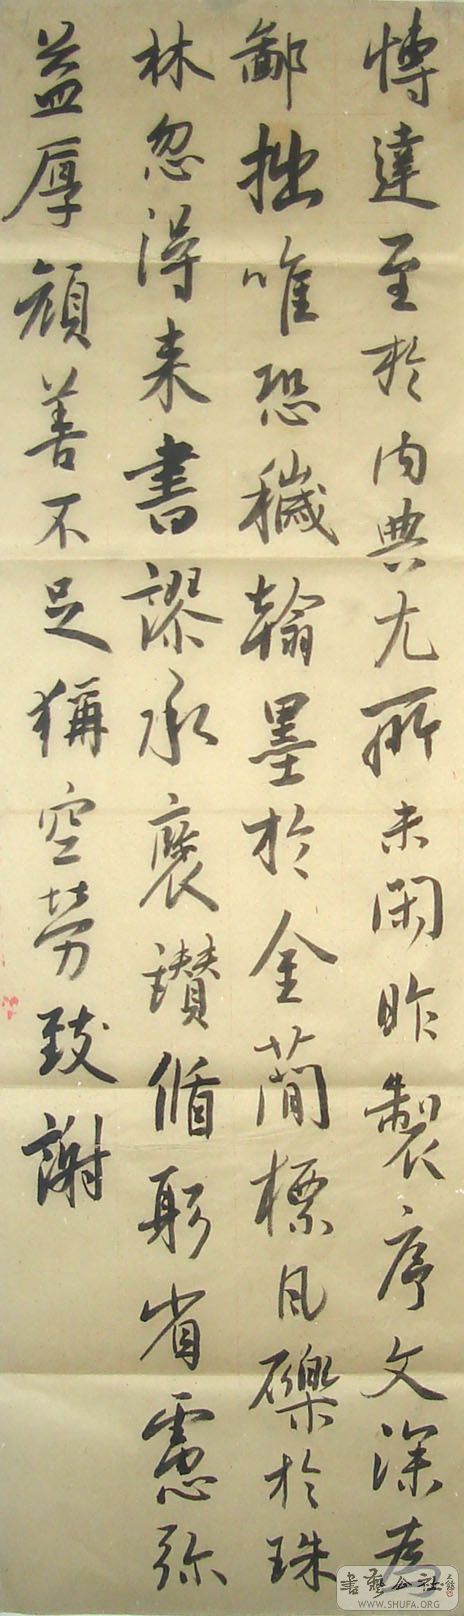 博達至於內典尤所未閑昨製序文深為
鄙拙唯恐穢翰墨於金簡標瓦礫於珠
林忽得来書謬承褒讃循躬省慮弥
益厚顔善不足稱空勞致謝
書藝公社
WWW.SHUFA.ORG